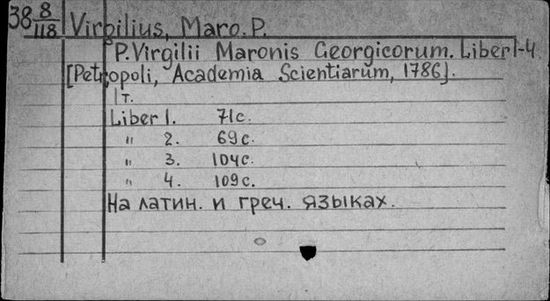 38 8/118 Virgilius, Maro. P.
P. Virgilii Maronis Georgicorum. Liber 1-4
[Petropoli, Academia Scientiarum, 1786].
1т.
Liber 1. 71с.
" 2. 69с.
" 3. 104с.
" 4. 109с.
На латин. и греч. языках.